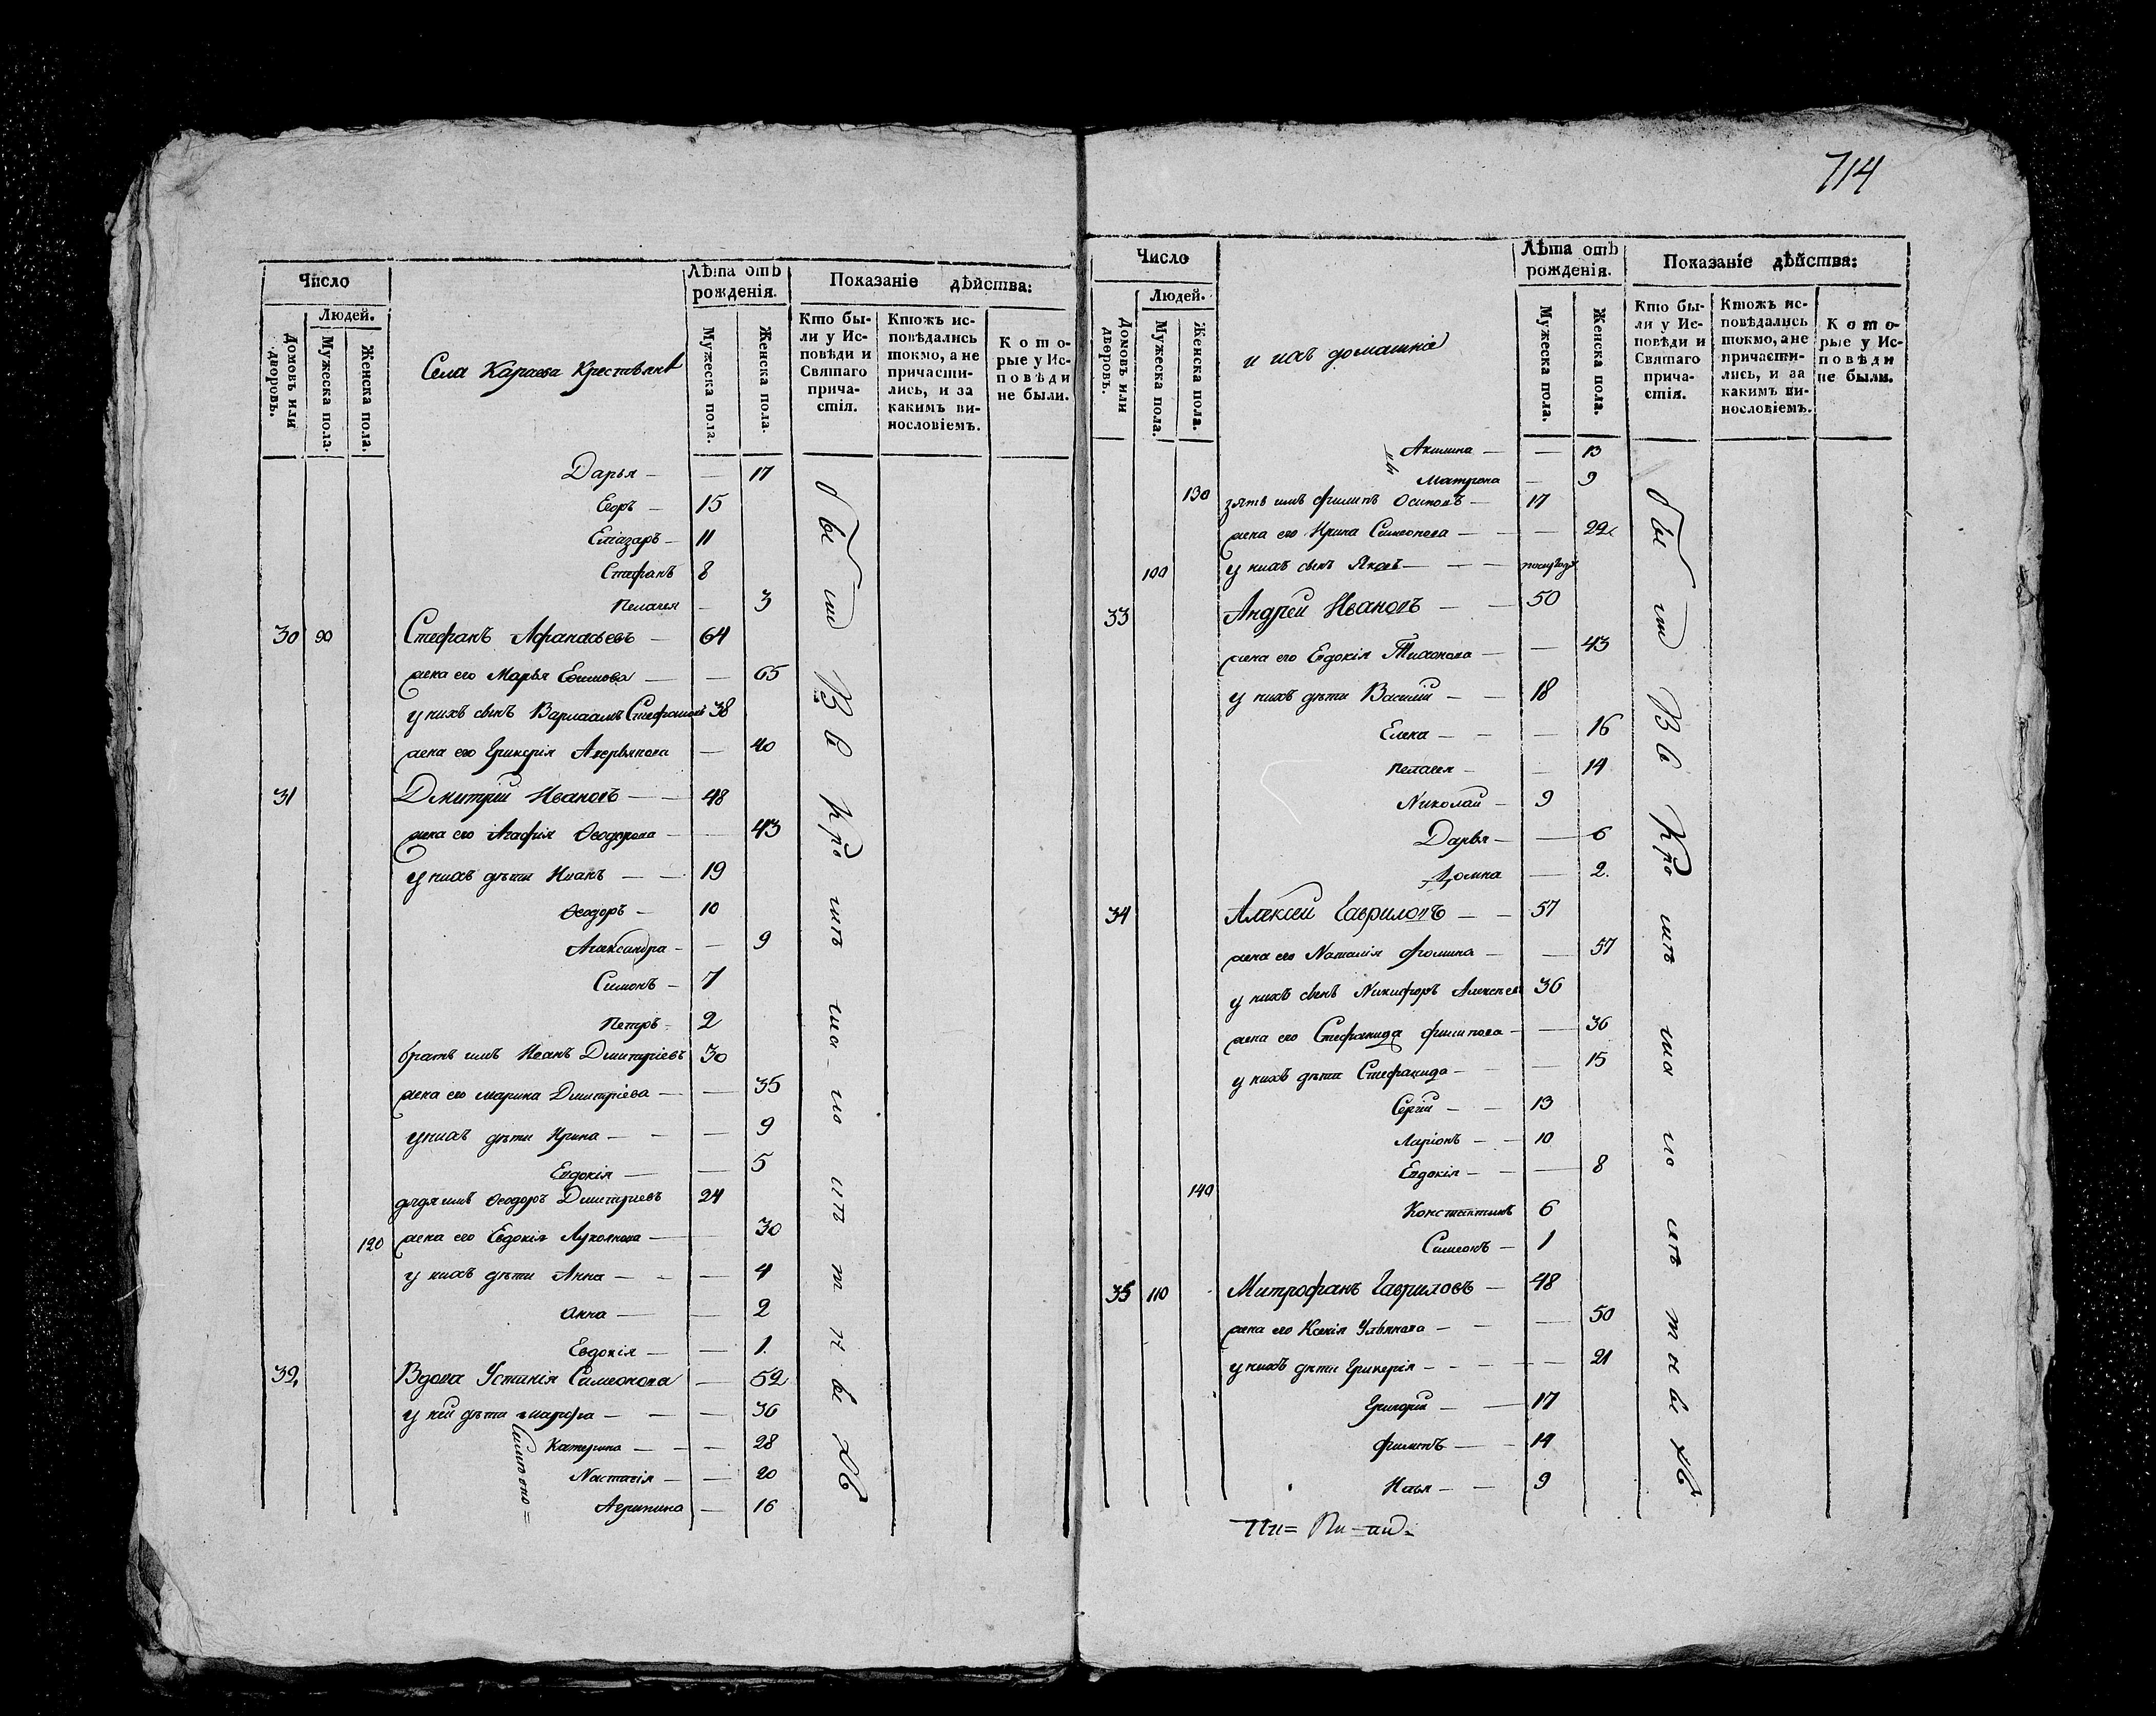 714
Число
Людей.
Домовъ или дворовъ.
Мужеска пола.
Женска пола.
Села Караева Крестьянъ
Лѣта отъ рожденія.
Мужеска пола.
Женска пола.
Показаніе дѣйства:
Кто были у Исповѣди и Святаго причастія.
Ктожъ исповѣдались токмо, а не причастились, и за какимъ винословіемъ.
Которые у Исповѣди не были.
Дарья — — 17
Егоръ — 15
Еліазаръ — 11
Стефанъ 8
Пелагея — 3
30 90 Стефанъ Афанасьевъ — 64
жена его Марья Ефимова — — 65
у нихъ сынъ Варлаамъ Стефановъ 38
жена его Гликерія Аверьянова — 40
31 Дмитрій Ивановъ — — 48
жена его Агафія Ѳеодорова — — 43
у нихъ дѣти Иванъ — — 19
Ѳеодоръ — 10
Александра — — 9
Симонъ — 7
Петръ — 2
братъ имъ Иванъ Дмитріевъ 30
жена его Марина Дмитріева — — 35
у нихъ дѣти Ирина — — — 9
Евдокія — — 5
дядя имъ Ѳеодоръ Дмитріевъ 24
120 жена его Евдокія — — 30
у нихъ дѣти Анна — — — 4
Анна — — 2
Евдокія — — 1.
32, Вдова Устинія Симеонова — 52
у ней дѣти Марфа — — — 36
Катерина — — — 28
Настасія — — 20
Агрипина — 16
Симеоно=
Бы ли В е ли ко по ст н ы хъ
Число
Людей.
Домовъ или дворовъ.
Мужеска пола.
Женска пола.
и ихъ домашнія
Лѣта отъ рожденія.
Мужеска пола.
Женска пола.
Показаніе дѣйства:
Кто были у Исповѣди и Святаго причастія.
Ктожъ исповѣдались токмо, а не причастились, и за какимъ винословіемъ.
Которые у Исповѣди не были.
Акилина — — 13
Матрона — 9
130 зять имъ Филипъ Осиповъ — 17
жена его Ирина Симеонова — — 22
100 у нихъ сынъ Яковъ — — — полугода
33 Андрей Ивановъ — — 50
жена его Евдокія Тихонова — — 43
у нихъ дѣти Василій — — 18
Елена — — — 16
Пелагея — — 14
Николай — 9
Дарья — — 6
Домна — 2.
34 Алексей Гавриловъ — — 57
жена его Наталія Фомина — — 57
у нихъ сынъ Никифоръ Алексеевъ 36
жена его Стефанида Филипова — — 36
у нихъ дѣти Стефанида — — 15
Сергій — — 13
Ларіонъ — — 10
Евдокія — — — 8
140
Константинъ 6
Симеонъ — 1
35 110 Митрофанъ Гавриловъ — 48
жена его Ксенія Ульянова — — — 50
у нихъ дѣти Гликерія — — — — 21
Григорій — — 17
Филипъ — — 14
Илья — — 9